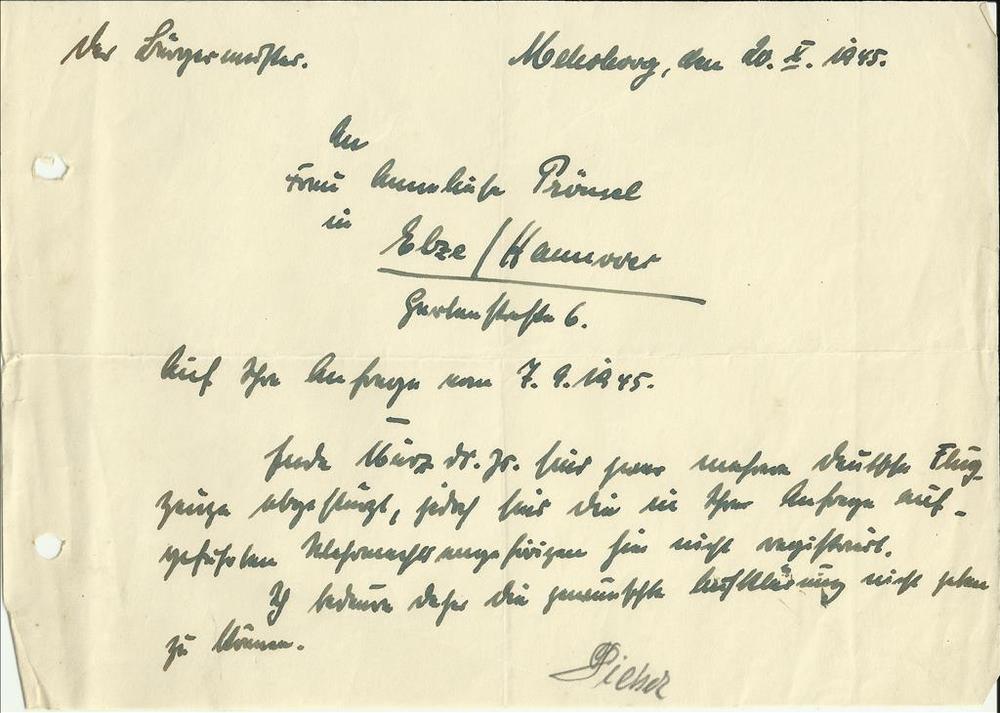 Der Bürgermeister.
den 20. X. 1945.
An
Frau Anneliese Prömel
in
Elze / Hannover
Gartenstraße 6.
Auf Ihre Anfrage vom 7. 9. 1945.
Ende März ds. Js. sind zwar mehrere deutsche Flug-
zeuge abgestürzt, jedoch sind die in Ihrer Anfrage auf-
geführten Wehrmachtsangehörigen hier nicht registriert.
Ich bedaure daher die gewünschte Aufklärung nicht geben
zu können.